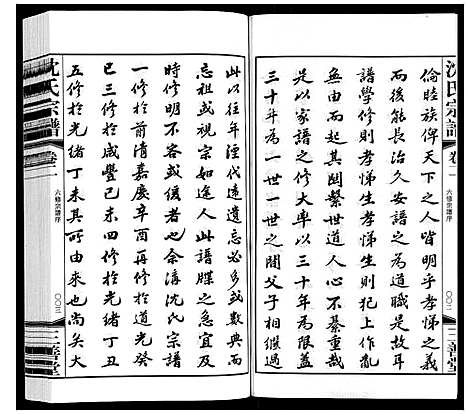 沈氏宗譜
卷二
六修宗譜序
〇〇二
三善堂
倫睦族俾天下之人皆明乎孝悌之義
而後能長治久安譜之設是故耳
譜學修則孝悌生孝悌生則犯上作亂
無由而起其關繫世道人心不綦重哉
是以家譜之修大率以三十年為限蓋
三十年為一世一世之間父子相繼過
此以往年湮代遠遺忘必多或數典而
忘祖或視宗如途人此譜牒之急宜及
時修明不容或緩者也余溝沈氏宗譜
一修於前清嘉慶辛酉再修於道光癸
巳三修於咸豐己未四修於光緒丁丑
五修於光緒丁未其可由來也尚矣大
沈氏宗譜
卷二
六修宗譜序
〇〇三
三善堂